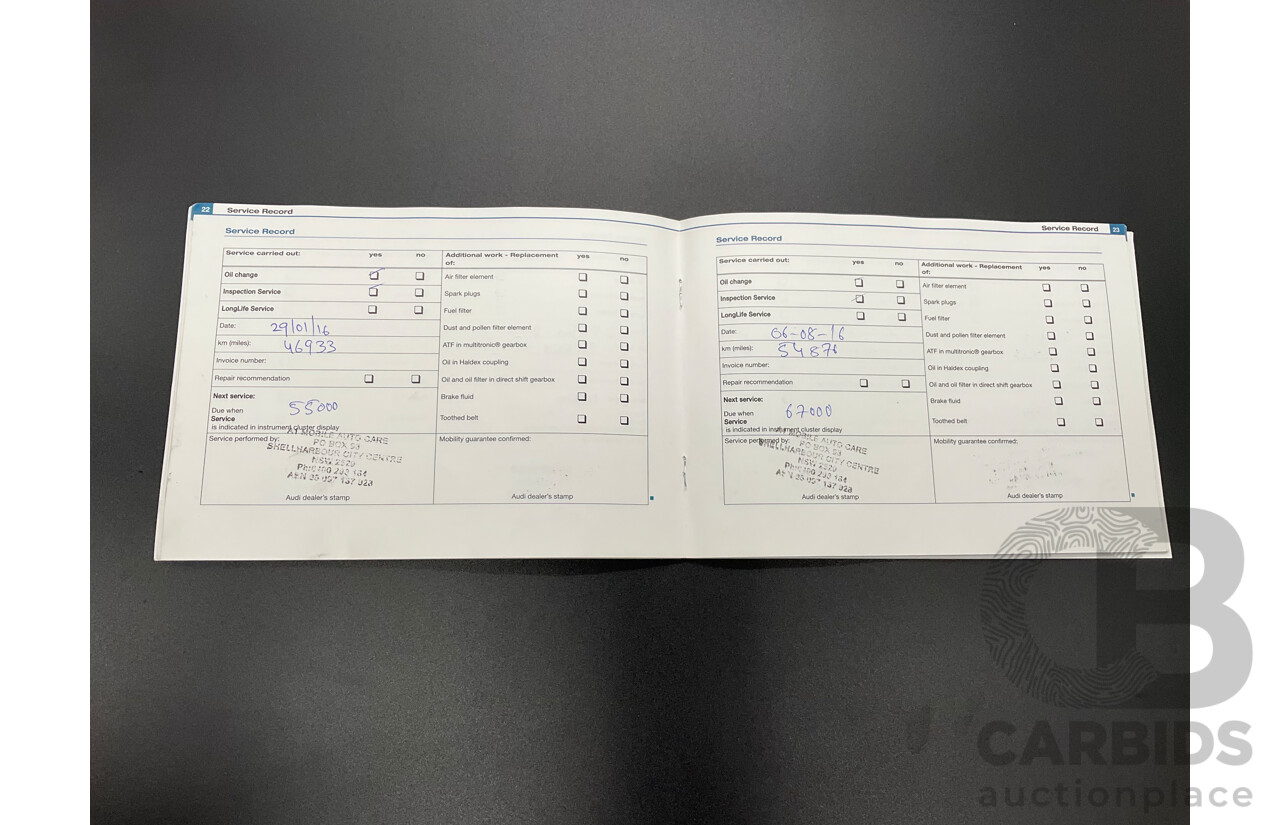 22 Service Record
Service Record
Service carried out: yes no
Oil change
Inspection Service
LongLife Service
Date: 29/01/16
km (miles): 46933
Invoice number:
Repair recommendation
Next service:
Due when 55000
Service
is indicated in instrument cluster display
Service performed by:
A1 MOBILE AUTO CARE
PO BOX 93
SHELLHARBOUR CITY CENTRE
NSW 2529
Audi dealer's stamp
Additional work - Replacement of: yes no
Air filter element
Spark plugs
Fuel filter
Dust and pollen filter element
ATF in multitronic® gearbox
Oil in Haldex coupling
Oil and oil filter in direct shift gearbox
Brake fluid
Toothed belt
Mobility guarantee confirmed:
Audi dealer's stamp
Service Record 23
Service Record
Service carried out: yes no
Oil change
Inspection Service
LongLife Service
Date: 06-08-16
km (miles): 54876
Invoice number:
Repair recommendation
Next service:
Due when 67000
Service
is indicated in instrument cluster display
Service performed by:
MOBILE AUTO CARE
PO BOX 93
SHELLHARBOUR CITY CENTRE
NSW 2529
Audi dealer's stamp
Additional work - Replacement of: yes no
Air filter element
Spark plugs
Fuel filter
Dust and pollen filter element
ATF in multitronic® gearbox
Oil in Haldex coupling
Oil and oil filter in direct shift gearbox
Brake fluid
Toothed belt
Mobility guarantee confirmed:
Audi dealer's stamp
CB
CARBIDS
auctionplace